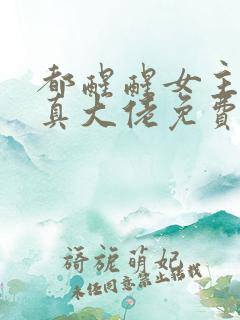 都醒醒女主
真大佬免費
旖旎萌妃
未经同意禁止转载